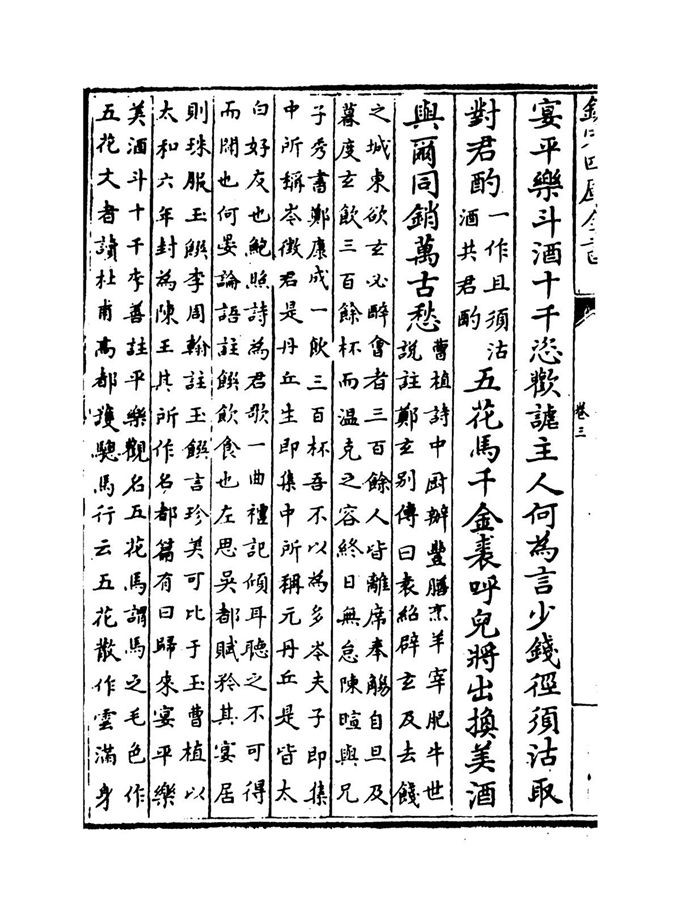 欽定四庫全書
卷三
宴平樂斗酒十千恣歡謔主人何為言少錢徑須沽取
對君酌
一作且須沽
酒共君酌
五花馬千金裘呼兒將出換美酒
與爾同銷萬古愁
曹植詩中厨辦豐膳烹羊宰肥牛世
說註鄭玄别傳曰袁紹辟玄及去餞
之城東欲玄必醉會者三百餘人皆離席奉觴自旦及
暮度玄飲三百餘杯而温克之容終日無怠陳暄與兄
子秀書鄭康成一飲三百杯吾不以為多岑夫子即集
中所稱岑徵君是丹丘生即集中所稱元丹丘是皆太
白好友也鮑照詩為君歌一曲禮記傾耳聽之不可得
而聞也何晏論語註饌飲食也左思吳都賦矜其宴居
則珠服玉饌李周翰註玉饌言珍美可比于玉曹植以
太和六年封為陳王其所作名都篇有曰歸來宴平樂
美酒斗十千李善註平樂觀名五花馬謂馬之毛色作
五花文者讀杜甫高都護驄馬行云五花散作雲滿身